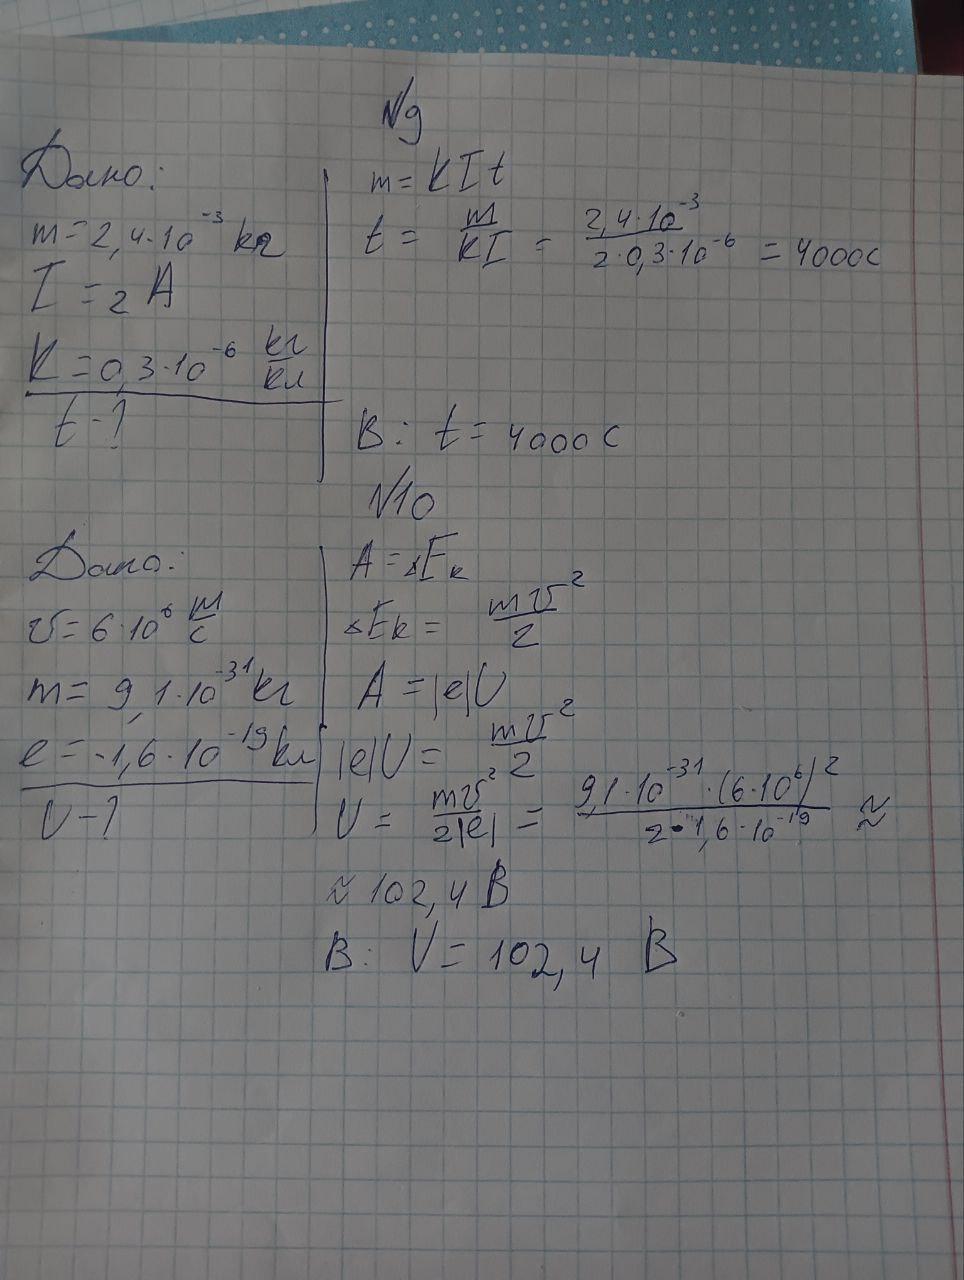 №9
Дано:
m = 2,4·10⁻³ кг
I = 2 А
K = 0,3·10⁻⁶ кг/кл
t - ?
m = KIt
t = m/KI = 2,4·10⁻³/2·0,3·10⁻⁶ = 4000с
В: t = 4000 с
№10
Дано:
v = 6·10⁶ м/с
m = 9,1·10⁻³¹ кг
e = -1,6·10⁻¹⁹ кл
U - ?
A = ΔEк
ΔEк = mv²/2
A = |e|U
|e|U = mv²/2
U = mv²/2|e| = 9,1·10⁻³¹·(6·10⁶)²/2·1,6·10⁻¹⁹ ≈
≈ 102,4 В
В: U = 102,4 В